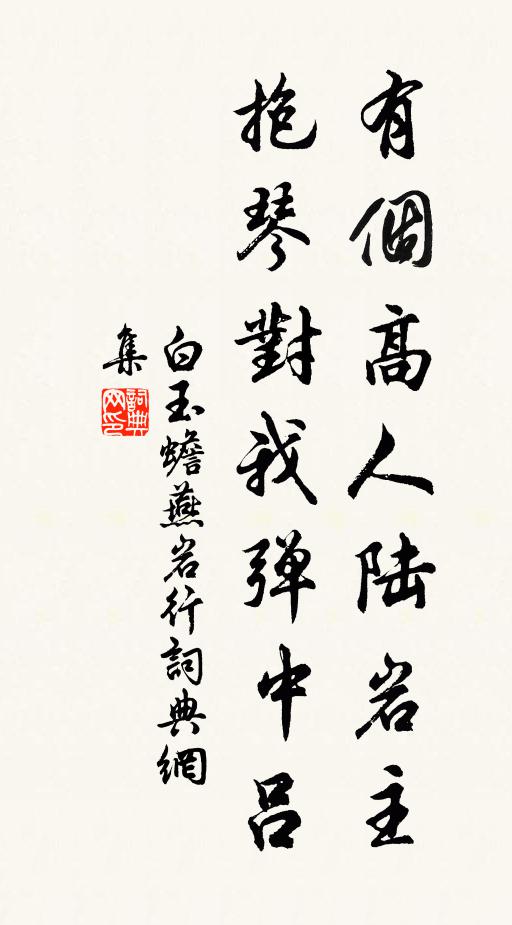 有個高人陆岩主
抱琴對我弾中呂
白玉蟾燕岩行詞典網
集
詞典网印